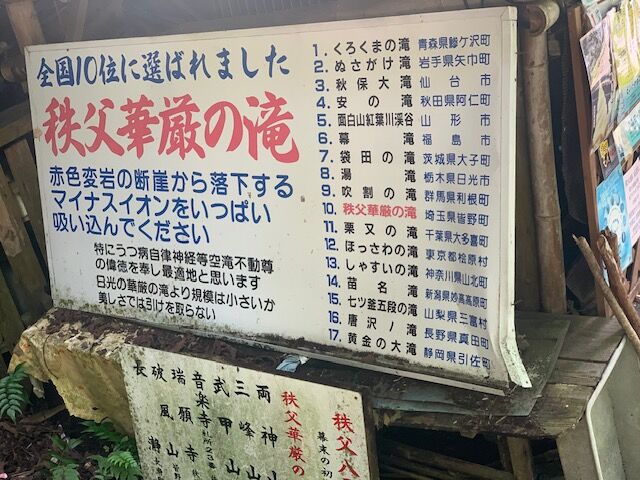 全国10位に選ばれました
秩父華厳の滝
赤色変岩の断崖から落下する
マイナスイオンをいっぱい
吸い込んでください
特にうつ病自律神経等空滝不動尊
の偉徳を奉し最適地と思います
日光の華厳の滝より規模は小さいか
美しさでは引けを取らない
1. くろくまの滝 青森県鰺ケ沢町
2. ぬさがけ滝 岩手県矢巾町
3. 秋保大滝 仙台市
4. 安の滝 秋田県阿仁町
5. 面白山紅葉川渓谷 山形市
6. 幕滝 福島市
7. 袋田の滝 茨城県大子町
8. 湯滝 栃木県日光市
9. 吹割の滝 群馬県利根町
10. 秩父華厳の滝 埼玉県皆野町
11. 粟又の滝 千葉県大多喜町
12. ほっさわの滝 東京都桧原村
13. しゃすいの滝 神奈川県山北町
14. 苗名滝 新潟県妙高高原町
15. 七ツ釜五段の滝 山梨県三富村
16. 唐沢ノ滝 長野県真田町
17. 黄金の大滝 静岡県引佐町
秩父八
幕末の初
秩父華厳の
両神山
三峰山
武甲山
音楽寺
瑞願寺
破風山
長瀞